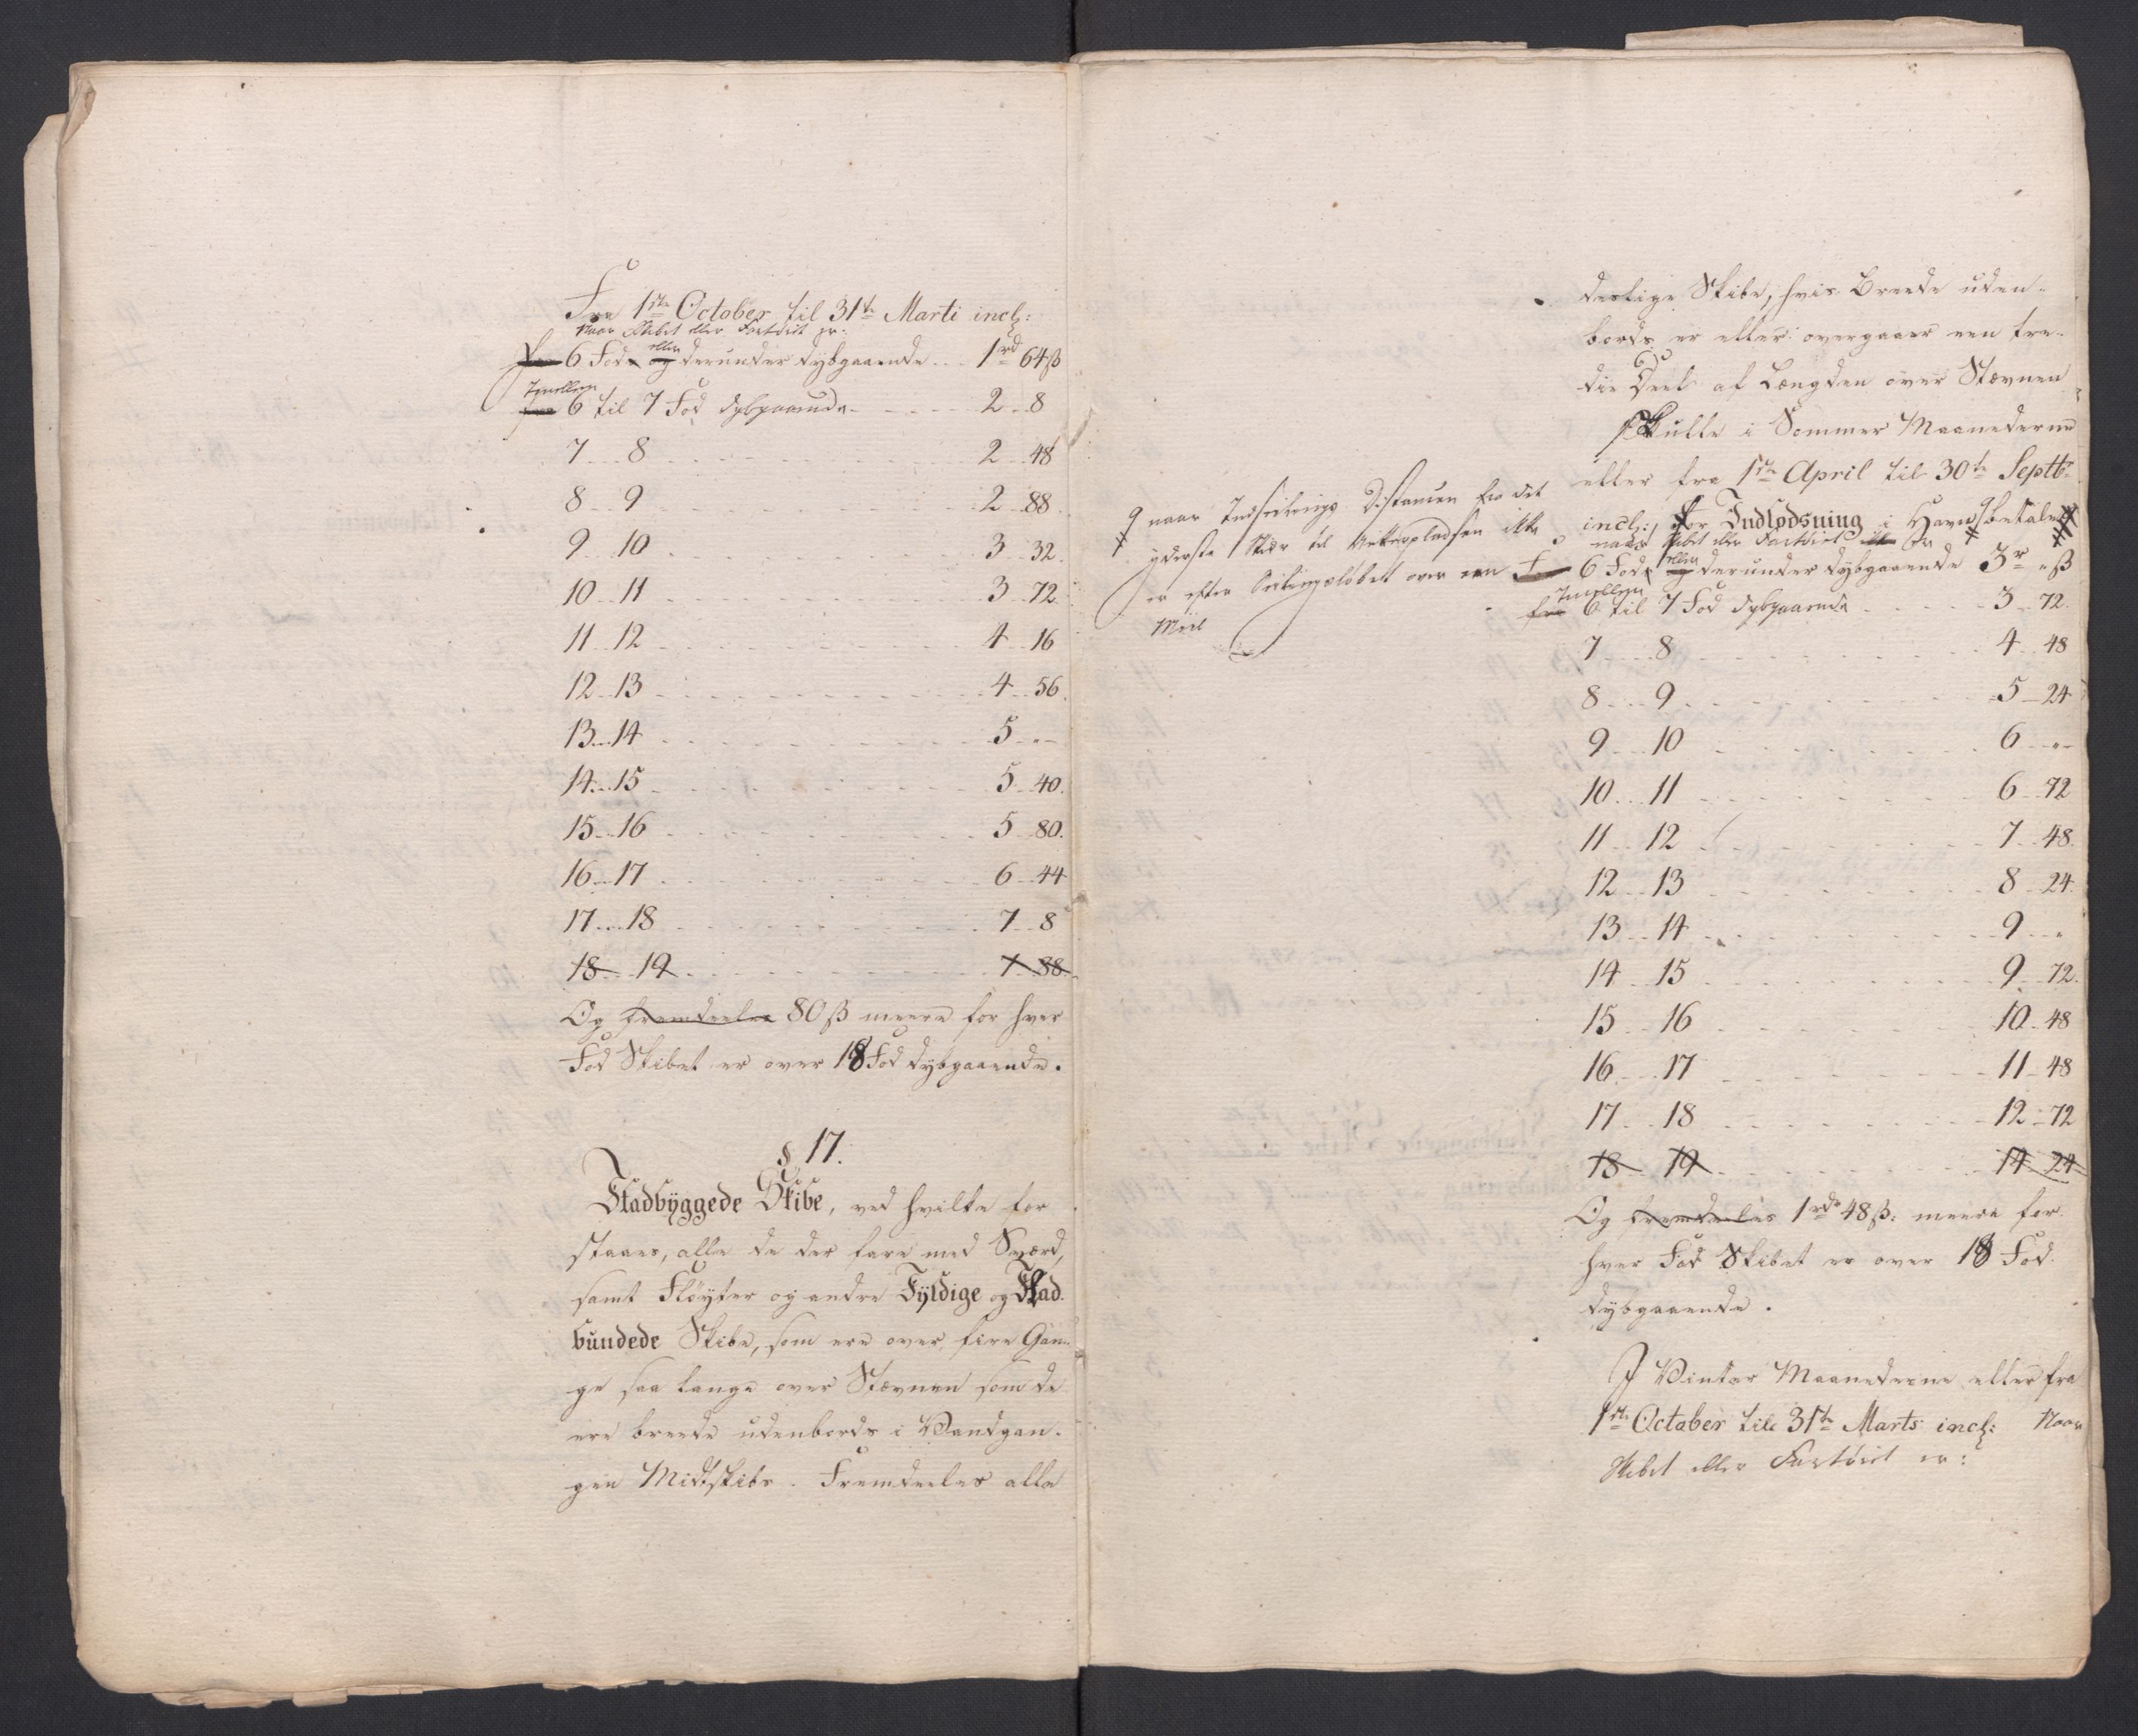 Fra 1ste October til 31te Marti incl:
Naar Skibet eller Fartöiet er:
6 Fod eller derunder dybgaaende ... 1rd 64ß
Imellem
6 til 7 Fod dybgaaende ... 2 .. 8
7 .. 8 ... 2 .. 48
8 .. 9 ... 2 .. 88
9 .. 10 ... 3 .. 32
10 .. 11 ... 3 .. 72
11 .. 12 ... 4 .. 16
12 .. 13 ... 4 .. 56
13 .. 14 ... 5 .. "
14 .. 15 ... 5 .. 40
15 .. 16 ... 5 .. 80
16 .. 17 ... 6 .. 44
17 .. 18 ... 7 .. 8
18 .. 19 ... 7 .. 88
Og fremdeeles 80 ß meere for hver
Fod Skibet er over 18 Fod dybgaaende.
§ 17.
Fladbÿggede Skibe, ved hvilke for
staaes, alle de der fare med Sværd,
samt Flöyter og andre Fÿldige og Flad
bundede Skibe, som ere over fire Gan
ge saa lange over Stævnen som de
ere breede udenbords i Vandgan-
gen Midtskibs. Fremdeeles alle
deslige Skibe, hvis Breede uden-
bords er eller overgaaer een tre-
die Deel af Længden over Stævnen
skulle i Sommer Maanederne
eller fra 1ste April til 30te Septbr
incl: for Indlodsning i Havn betale
naar Skibet eller Fartöiet er
naar Indseilings Distancen fra det
yderste Skiær til Ankerpladsen ikke
er efter Seilingslöbet over een
Miil
6 Fod eller derunder dybgaaende 3r " ß
Imellem
fra 6 til 7 Fod dybgaaende ... 3 .. 72
7 .. 8 ... 4 .. 48
8 .. 9 ... 5 .. 24
9 .. 10 ... 6 .. "
10 .. 11 ... 6 .. 72
11 .. 12 ... 7 .. 48
12 .. 13 ... 8 .. 24
13 .. 14 ... 9 .. "
14 .. 15 ... 9 .. 72
15 .. 16 ... 10 .. 48
16 .. 17 ... 11 .. 48
17 .. 18 ... 12 .. 72
18 .. 19 ... 14 .. 24
Og fremdeeles 1rd 48 ß: meere for
hver Fod Skibet er over 18 Fod
dybgaaende.
I Vinter Maanederne eller fra
1ste October til 31te Marts incl: Naar
Skibet eller Fartöiet er: